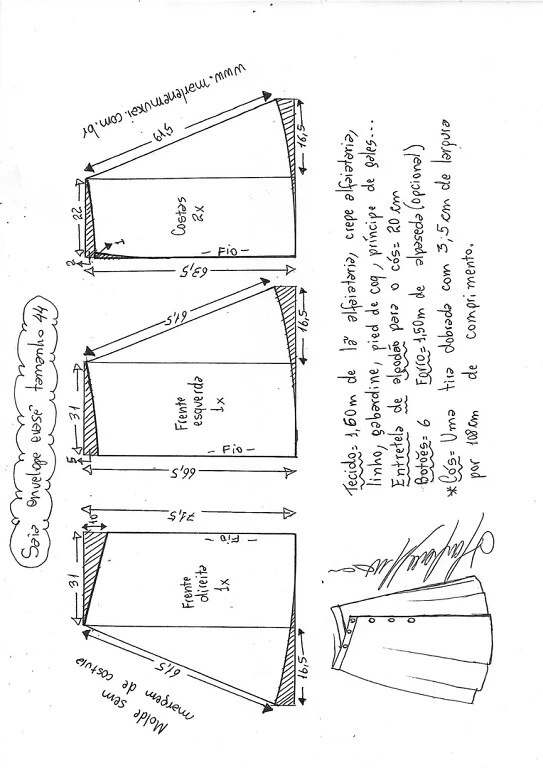 Saia envelope evasê tamanho 44
Molde sem
margem de costura
31
10
71,5
Fio
Frente
direita
1x
61,5
16,5
31
5
66,5
Fio
Frente
esquerda
1x
61,5
16,5
22
2
1
63,5
Fio
Costas
2x
61,5
16,5
www.marlenemukai.com.br
Tecido= 1,60m de lã alfaiataria, crepe alfaiataria,
linho, gabardine, pied de coq, príncipe de gales...
Entretela de algodão para o cós= 20 cm
Botões= 6 Forro= 1,50m de alpaseda (opcional)
*Cós= Uma tira dobrada com 3,5 cm de largura
por 108cm de comprimento.